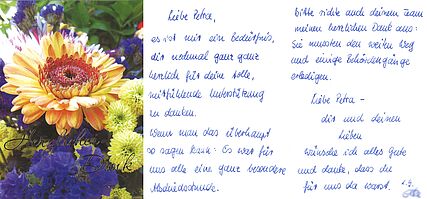 Herzlichen
Dank
Liebe Petra,
es ist mir ein Bedürfnis,
dir nochmal ganz ganz
herzlich für deine tolle,
mitfühlende Unterstützung
zu danken.
Wenn man das überhaupt
so sagen kann: Es war für
uns alle eine ganz besondere
Abschiedsstunde.
bitte richte auch deinem Team
meinen herzlichen Dank aus:
Sie mussten den weiten Weg
und einige Behördengänge
erledigen.
Liebe Petra –
dir und deinen
Lieben
wünsche ich alles Gute
und danke, dass du
für uns da warst.